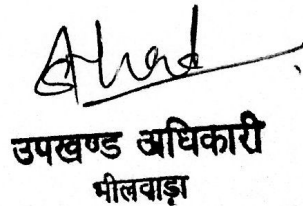 उपखण्ड अधिकारी
भीलवाड़ा